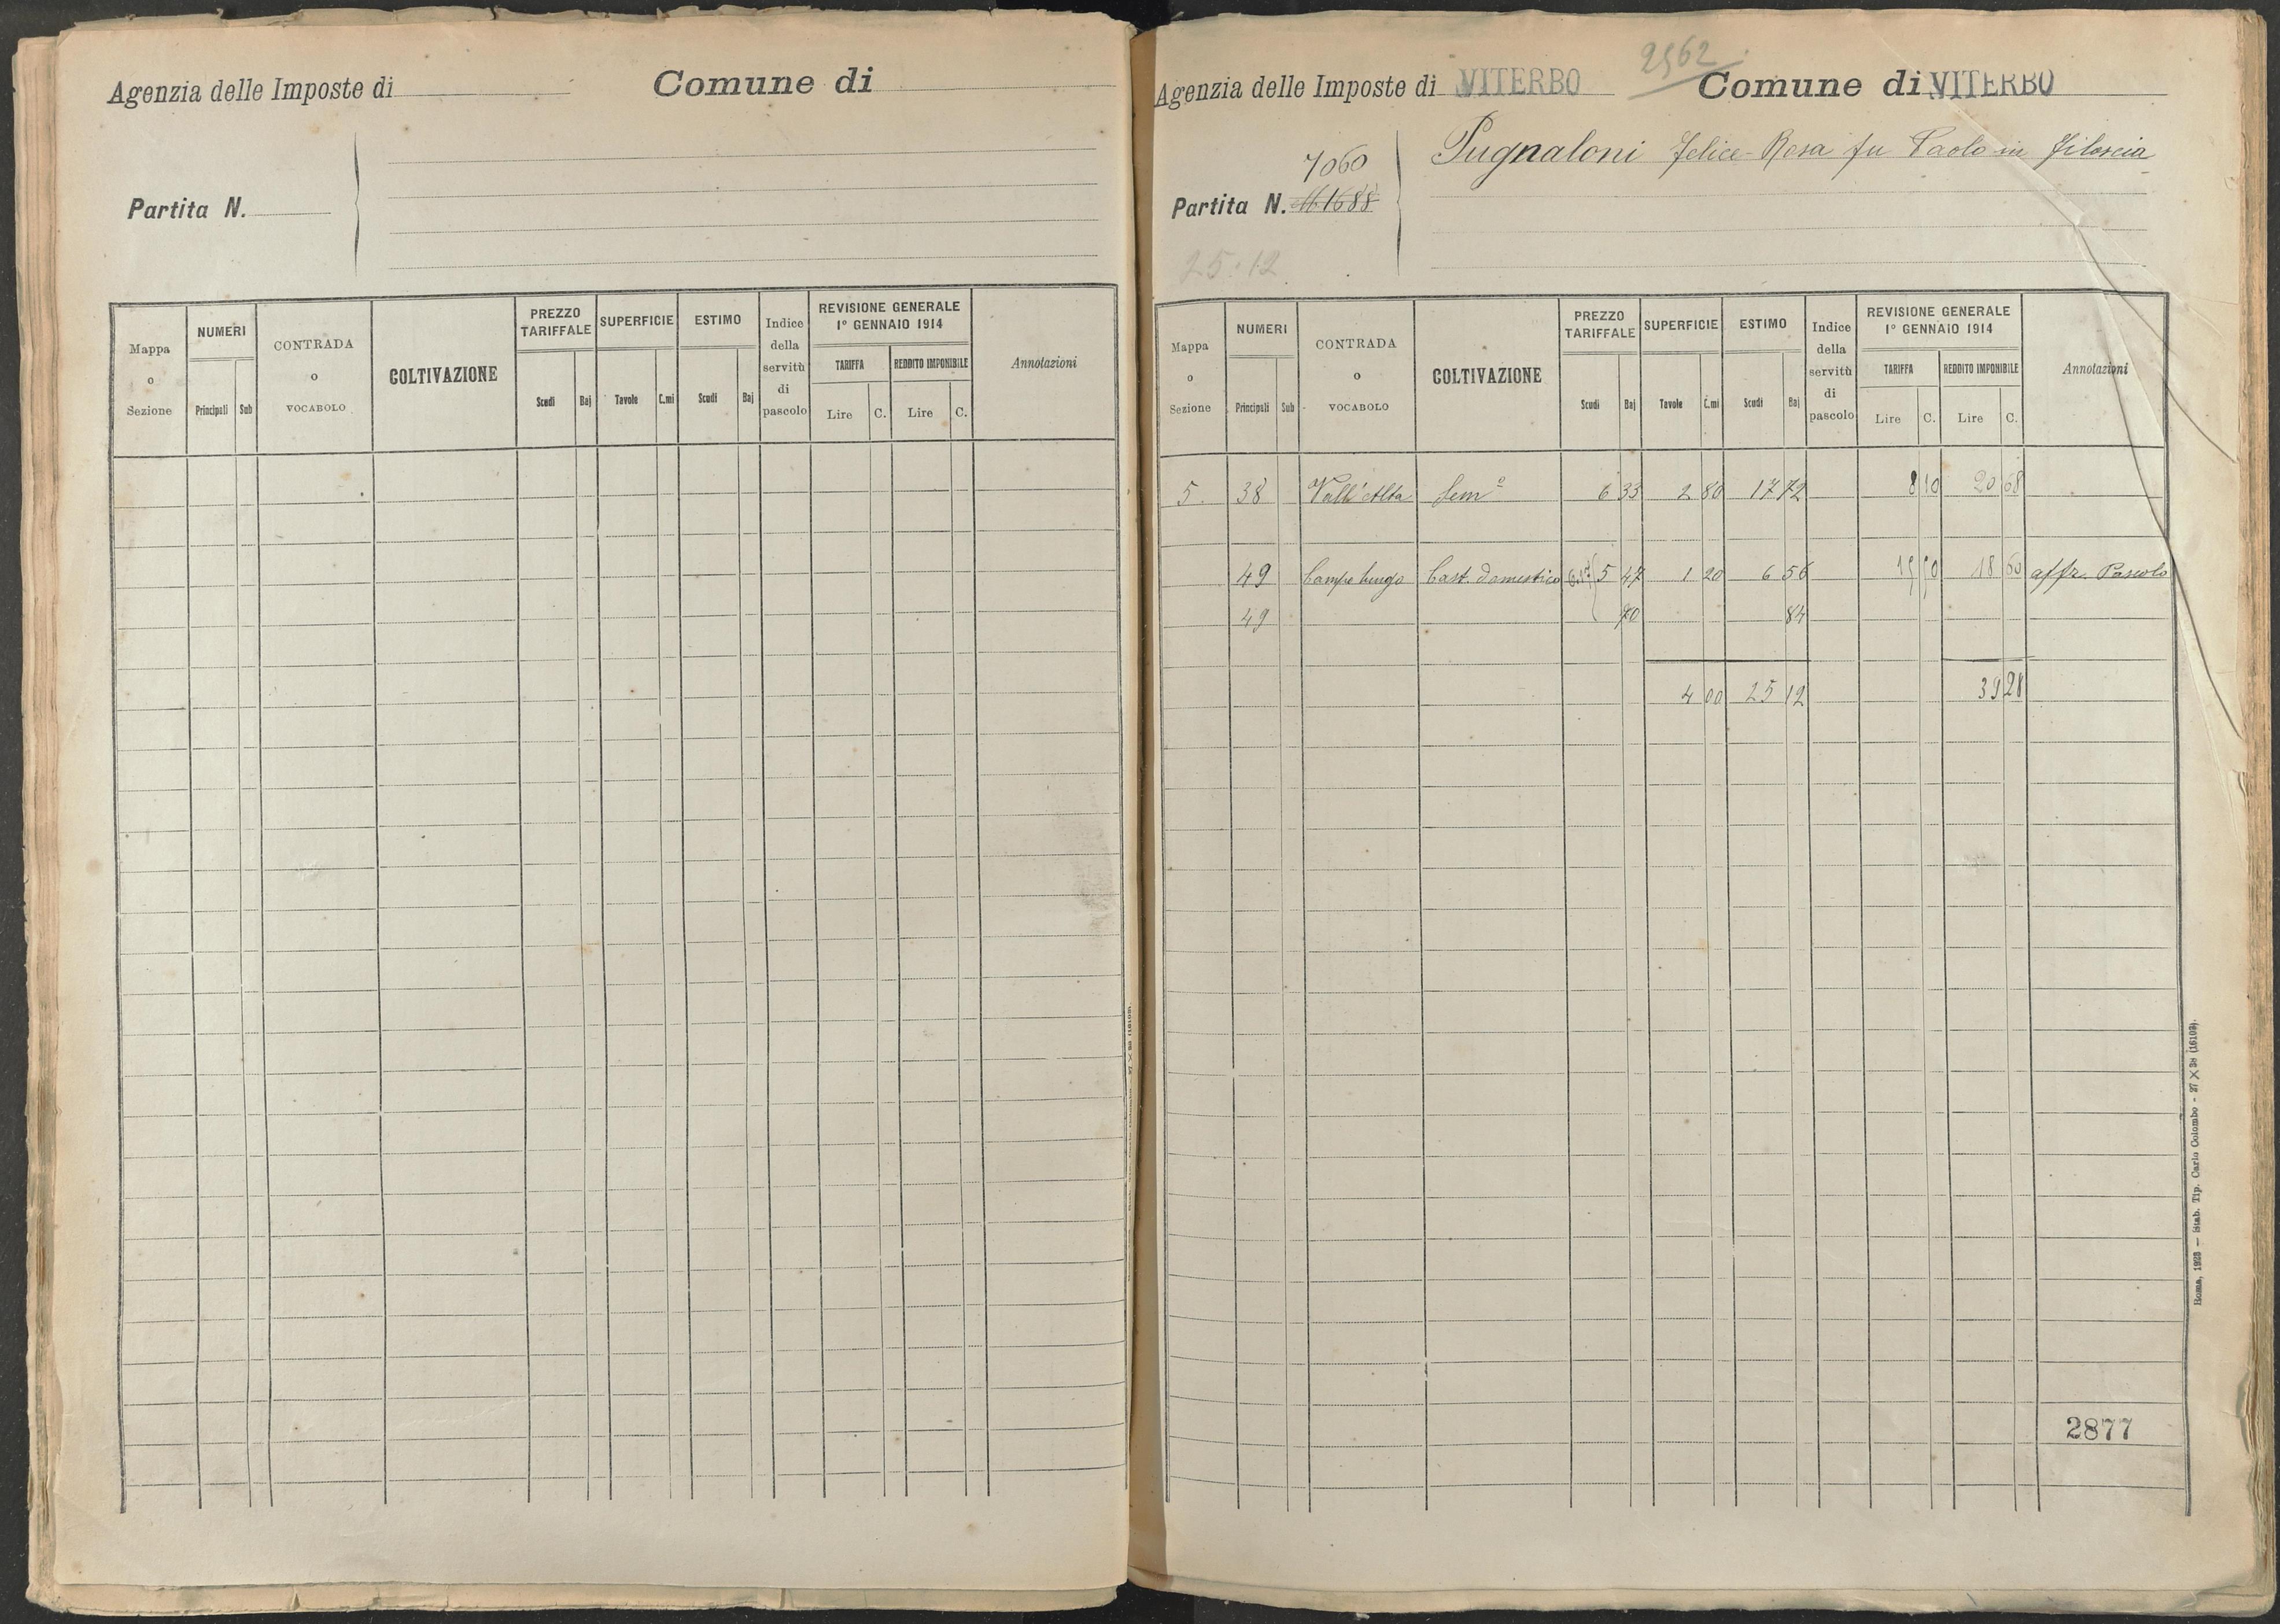 Agenzia delle Imposte di Comune di
Partita N.
Mappa o Sezione
NUMERI
Principali Sub
CONTRADA o VOCABOLO
COLTIVAZIONE
PREZZO TARIFFALE
Scudi Baj
SUPERFICIE
Tavole C.mi
ESTIMO
Scudi Baj
Indice della servitù di pascolo
REVISIONE GENERALE
1° GENNAIO 1914
TARIFFA REDDITO IMPONIBILE
Lire C. Lire C.
Annotazioni
2562
Agenzia delle Imposte di VITERBO Comune di VITERBO
Pugnaloni Felice-Rosa fu Paolo in Filoscia
7060
Partita N. 1688
25:12
Mappa o Sezione
NUMERI
Principali Sub
CONTRADA o VOCABOLO
COLTIVAZIONE
PREZZO TARIFFALE
Scudi Baj
SUPERFICIE
Tavole C.mi
ESTIMO
Scudi Baj
Indice della servitù di pascolo
REVISIONE GENERALE
1° GENNAIO 1914
TARIFFA REDDITO IMPONIBILE
Lire C. Lire C.
Annotazioni
5. 38 Vall'Alta Sem° 6 33 2 80 17 72 8 10 20 68
49 Campo lungo Cast. domestico 6.17 5 47 1 20 6 56 15 50 18 60 affr. Pascolo
49 70 84
4 00 25 12 39 28
Roma, 1923 — Stab. Tip. Carlo Colombo - 27 × 38 (16109).
2877